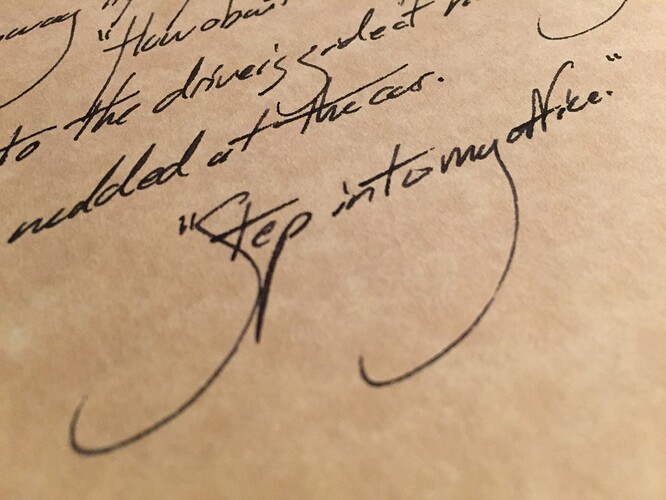 "How about
to the driver's side at
nodded at the car.
"Step into my office."